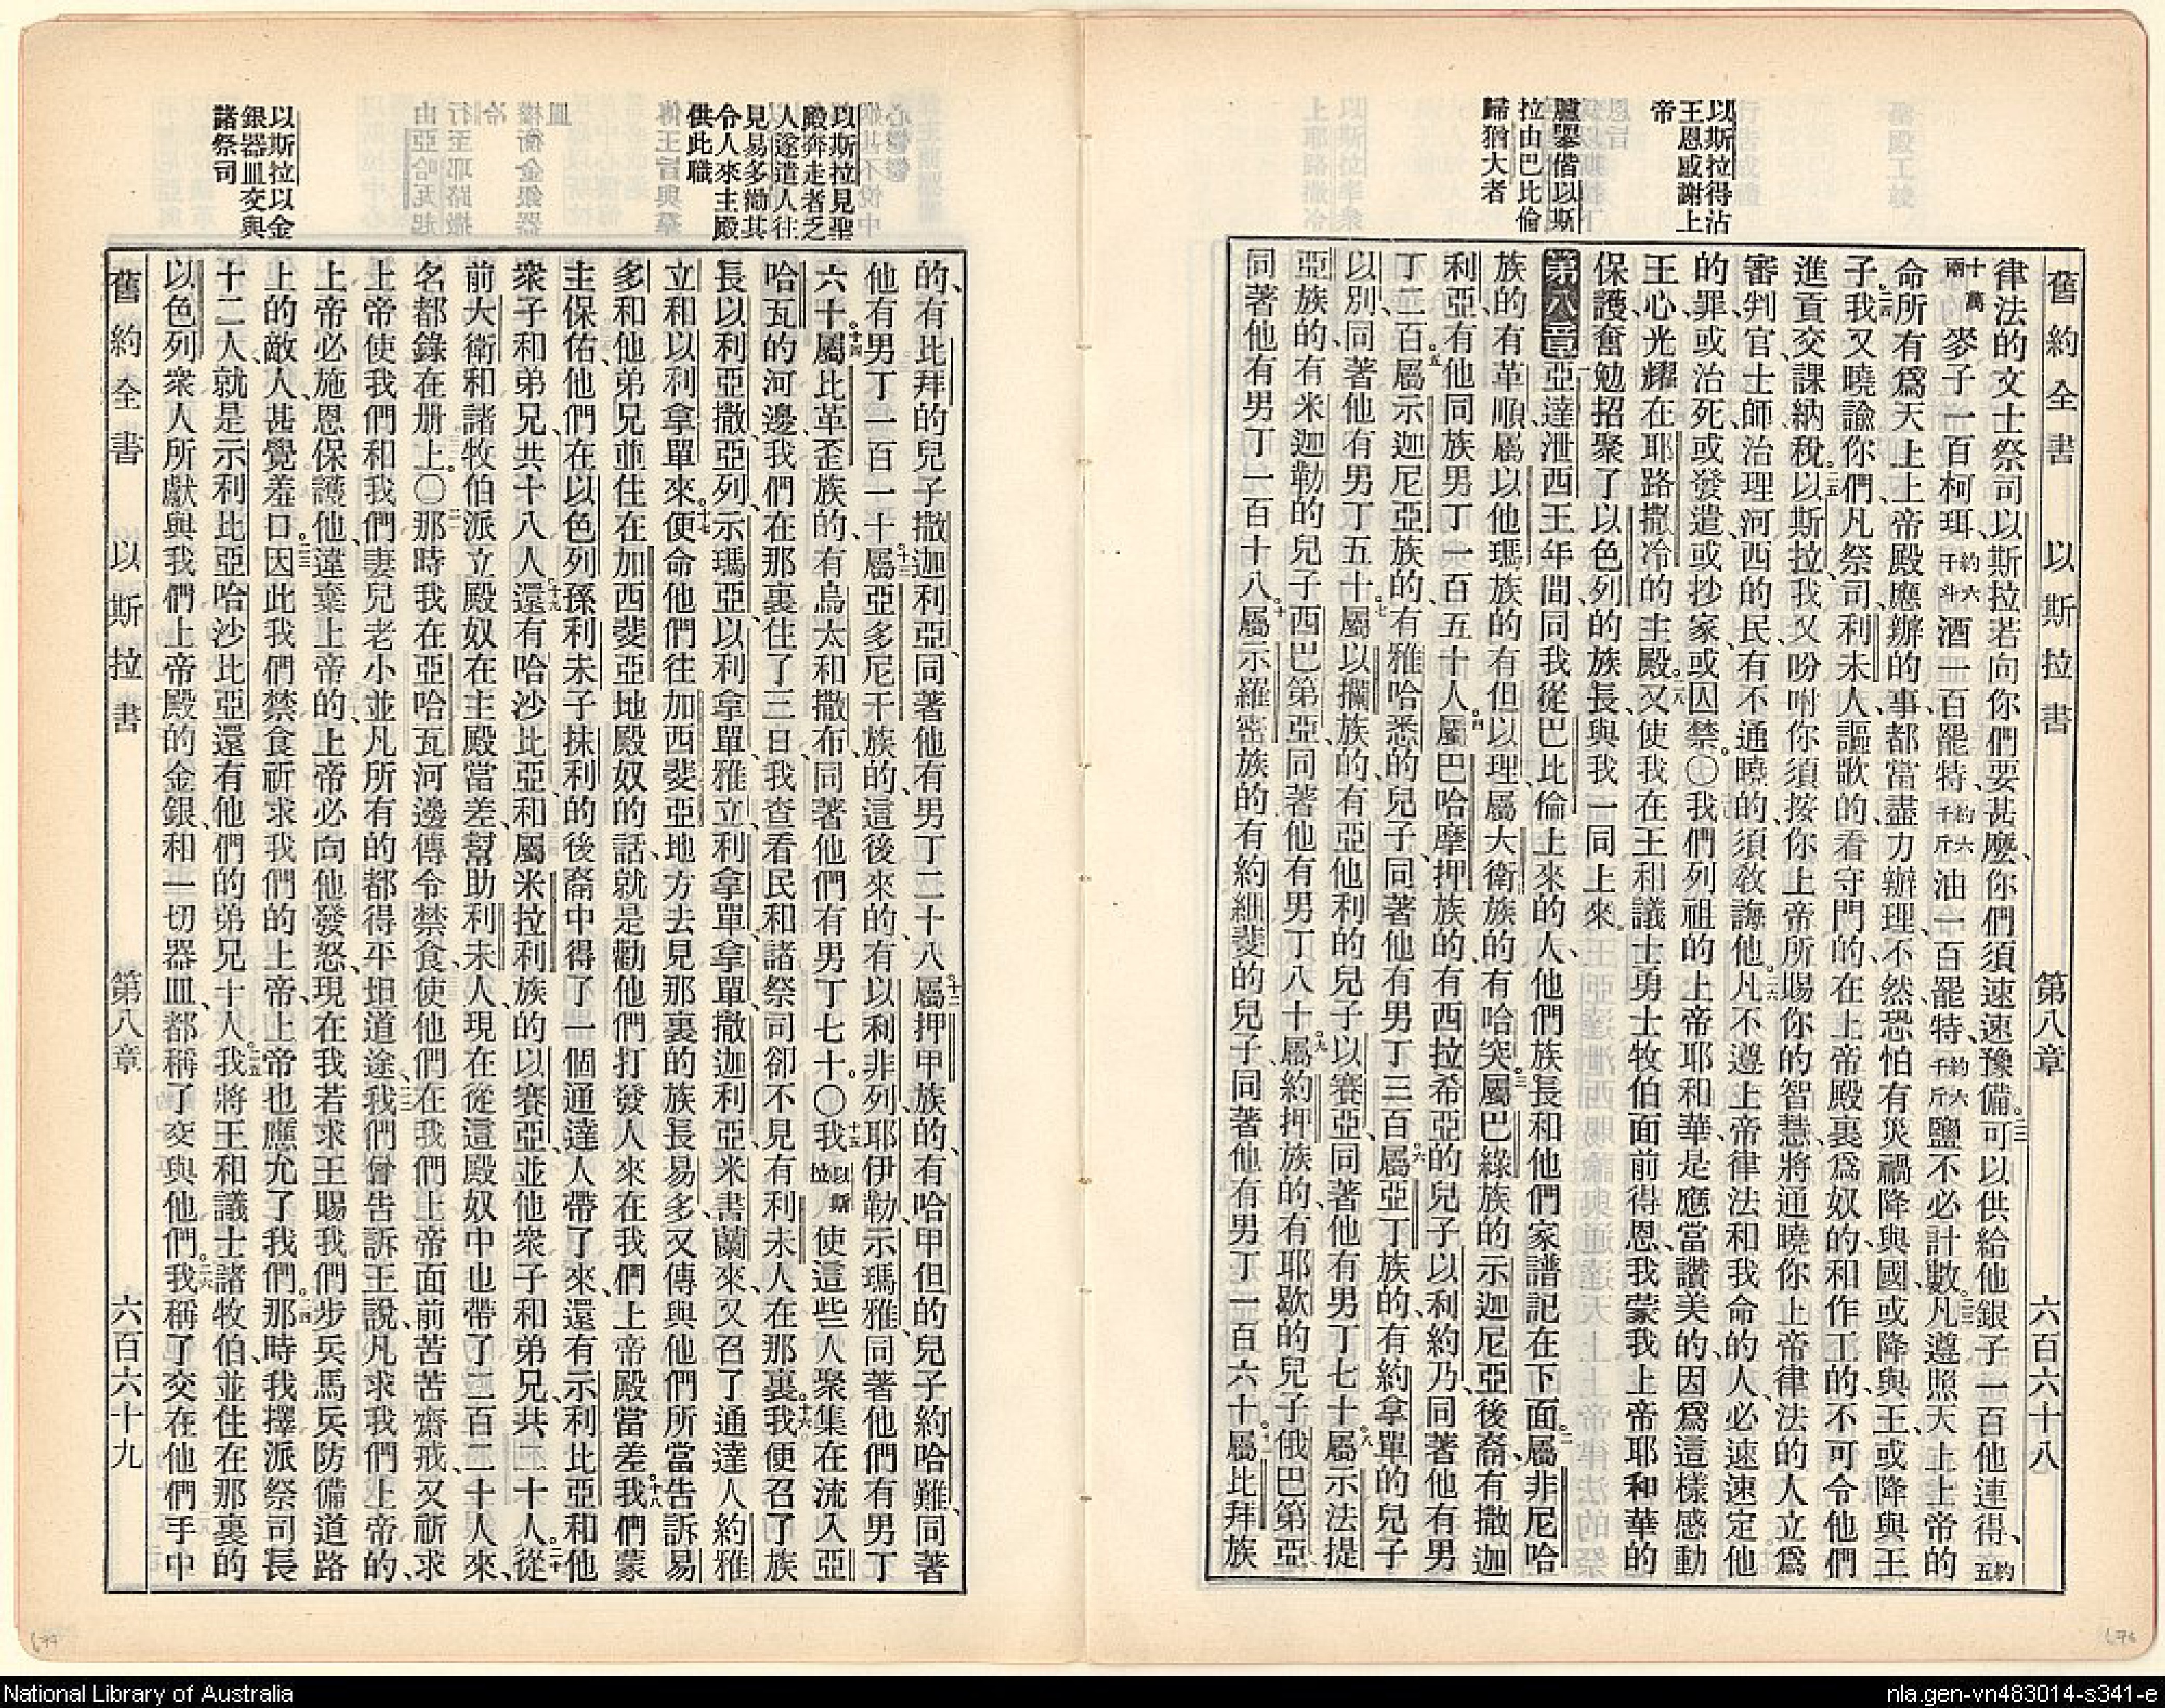 舊約全書 以斯拉書 第八章 六百六十八
以斯拉得沾
王恩感謝上
帝
臚舉偕以斯
拉由巴比倫
歸猶大者
律法的文士祭司以斯拉若向你們要甚麼、你們須速速豫備。二二可以供給他銀子一百他連得、約五
十萬兩麥子一百柯珥約六千斗酒一百罷特、約六千斤油一百罷特、約六千斤鹽不必計數。二三凡遵照天上上帝的
命所有爲天上上帝殿應辦的事、都當盡力辦理、不然恐怕有災禍降與國、或降與王、或降與王
子。二四我又曉諭你們、凡祭司、利未人、謳歌的、看守門的、在上帝殿裏爲奴的、和作工的、不可令他們
進貢交課納稅。二五以斯拉、我又吩咐你須按你上帝所賜你的智慧、將通曉你上帝律法的人立爲
審判官士師、治理河西的民、有不通曉的、須敎誨他。二六凡不遵上帝律法和我命的人、必速速定他
的罪、或治死、或發遣、或抄家、或囚禁。○我們列祖的上帝耶和華、是應當讚美的、因爲這樣感動
王心、光耀在耶路撒冷的主殿。二八又使我在王和議士勇士牧伯面前得恩、我蒙我上帝耶和華的
保護、奮勉招聚了以色列的族長、與我一同上來。
第八章一亞達泄西王年間、同我從巴比倫上來的人、他們族長和他們家譜記在下面。二屬非尼哈
族的、有革順、屬以他瑪族的有但以理、屬大衛族的、有哈突。三屬巴綠族的示迦尼亞後裔、有撒迦
利亞、有他同族男丁一百五十人。四屬巴哈摩押族的、有西拉希亞的兒子以利約乃、同著他有男
丁二百。五屬示迦尼亞族的、有雅哈悉的兒子、同著他有男丁三百。六屬亞丁族的、有約拿單的兒子
以別、同著他有男丁五十。七屬以攔族的、有亞他利的兒子以賽亞、同著他有男丁七十。八屬示法提
亞族的、有米迦勒的兒子西巴第亞、同著他有男丁八十。九屬約押族的、有耶歇的兒子俄巴第亞、
同著他有男丁一百十八。十屬示羅密族的、有約細斐的兒子、同著他有男丁一百六十。十一屬比拜族
以斯拉見聖
殿奔走者乏
人遂遣人往
見易多勸其
令人來主殿
供此職
以斯拉以金
銀器皿交與
諸祭司
的、有比拜的兒子撒迦利亞、同著他有男丁二十八。十二屬押甲族的、有哈甲但的兒子約哈難、同著
他有男丁一百一十。十三屬亞多尼干族的、這後來的、有以利非列、耶伊勒、示瑪雅、同著他們有男丁
六十。十四屬比革歪族的、有烏太和撒布、同著他們有男丁七十。○十五我以斯拉使這些人聚集在流入亞
哈瓦的河邊、我們在那裏住了三日、我查看民和諸祭司、卻不見有利未人在那裏。十六我便召了族
長以利亞撒、亞列、示瑪亞、以利拿單、雅立、利拿單、拿單、撒迦利亞、米書蘭來、又召了通達人約雅
立和以利拿單來。十七便命他們往加西斐亞地方去見那裏的族長易多、又傳與他們所當告訴易
多和他弟兄並住在加西斐亞地殿奴的話、就是勸他們打發人來在我們上帝殿當差。十八我們蒙
主保佑、他們在以色列孫利未子抹利的後裔中得了一個通達人帶了來、還有示利比亞和他
衆子和弟兄、共十八人。十九還有哈沙比亞、和屬米拉利族的以賽亞、並他衆子和弟兄、共二十人。二十從
前大衛和諸牧伯派立殿奴在主殿當差、幫助利未人、現在從這殿奴中也帶了二百二十人來、
名都錄在册上。○二一那時我在亞哈瓦河邊傳令禁食、使他們在我們上帝面前苦苦齋戒、又祈求
上帝使我們和我們妻兒老小並凡所有的都得平坦道途。二二我們曾告訴王說、凡求我們上帝的、
上帝必施恩保護他、違棄上帝的、上帝必向他發怒、現在我若求王賜我們步兵馬兵防備道路
上的敵人、甚覺羞口。二三因此我們禁食祈求我們的上帝、上帝也應允了我們。二四那時我擇派祭司長
十二人、就是示利比亞、哈沙比亞、還有他們的弟兄十人。二五我將王和議士諸牧伯、並住在那裏的
以色列衆人所獻與我們上帝殿的金銀、和一切器皿、都稱了交與他們。二六我稱了交在他們手中
舊約全書 以斯拉書 第八章 六百六十九
National Library of Australia
nla.gen-vn483014-s341-e